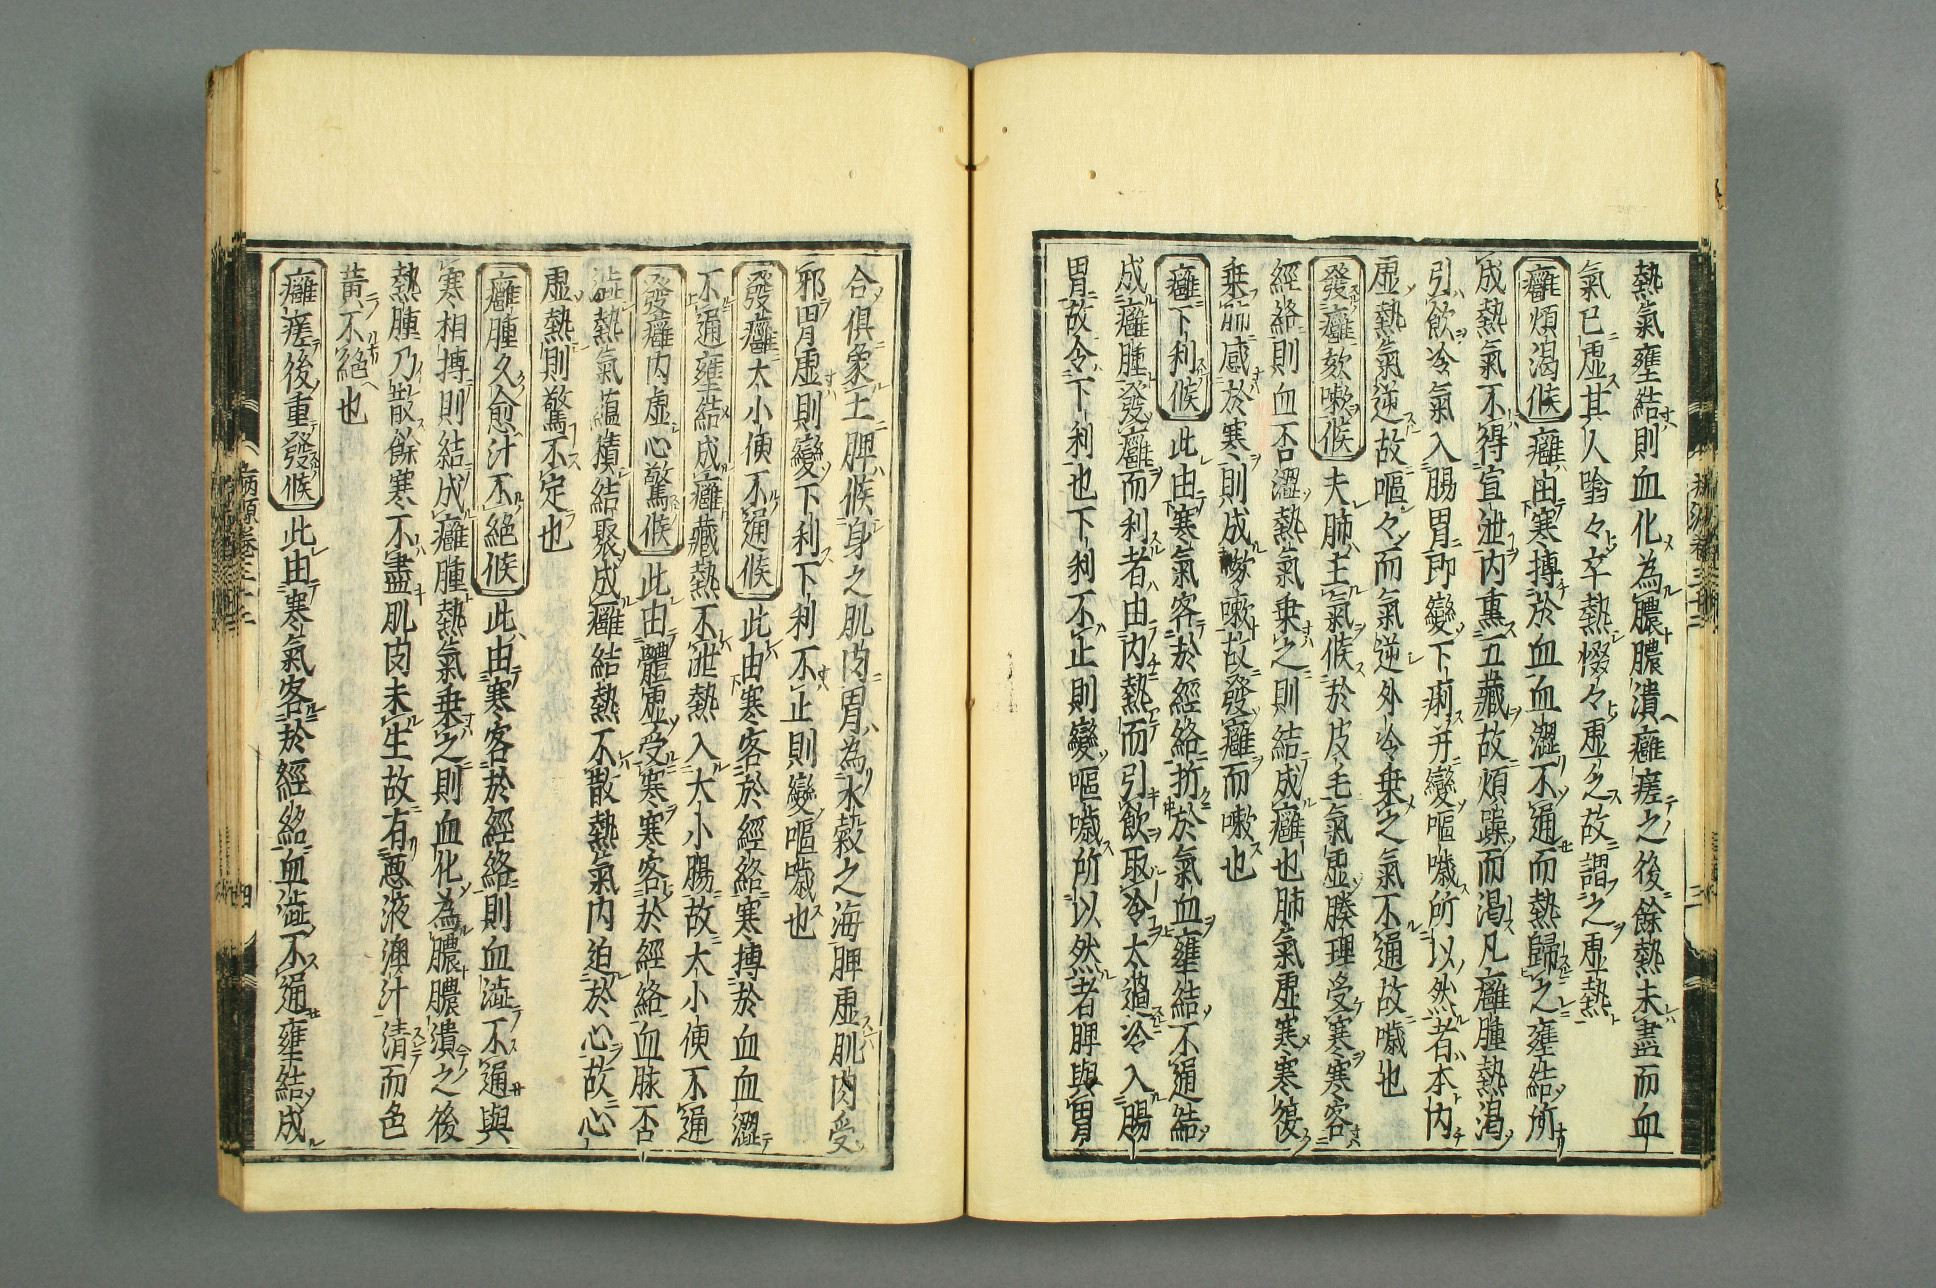 熱氣壅結則血化為膿膿潰癰瘥之後餘熱未盡而血
氣已虛其人噏々卒熱惙々虛乏故謂之虛熱
癰煩渴候 癰由寒搏於血血澀不通而熱歸之壅結所
成熱氣不得宣泄内熏五藏故煩躁而渴凡癰腫熱渴
引飲冷氣入腸胃即變下痢并變嘔噦所以然者本内
虛熱氣逆故嘔々而氣逆外冷乗之氣不通故噦也
發癰欬嗽候 夫肺主氣候於皮毛氣虛腠理受寒寒客
經絡則血否澀熱氣乗之則結成癰也肺氣虛寒寒復
乗肺感於寒則成欬嗽故發癰而嗽也
癰下利候 此由寒氣客於經絡折於氣血壅結不通結
成癰腫發癰而利者由内熱而引飲取冷太過冷入腸
胃故令下利也下利不止則變嘔噦所以然者脾與胃
合俱象土脾候身之肌肉胃為水穀之海脾虛肌肉受
邪胃虛則變下利下利不止則變嘔噦也
發癰太小便不通候 此由寒客於經絡寒搏於血血澀
不通壅結成癰藏熱不泄熱入大小腸故太小便不通
發癰内虛心驚候 此由體虛受寒寒客於經絡血脉否
澁熱氣蘊積結聚成癰結熱不散熱氣内迫於心故心
虛熱則驚不定也
癰腫久愈汁不絕候 此由寒客於經絡則血澁不通與
寒相搏則結成癰腫熱氣乗之則血化為膿膿潰之後
熱腫乃散餘寒不盡肌肉未生故有惡液澳汁清而色
黄不絕也
癰瘥後重發候 此由寒氣客於經絡血澁不通壅結成
病源卷三十三
四